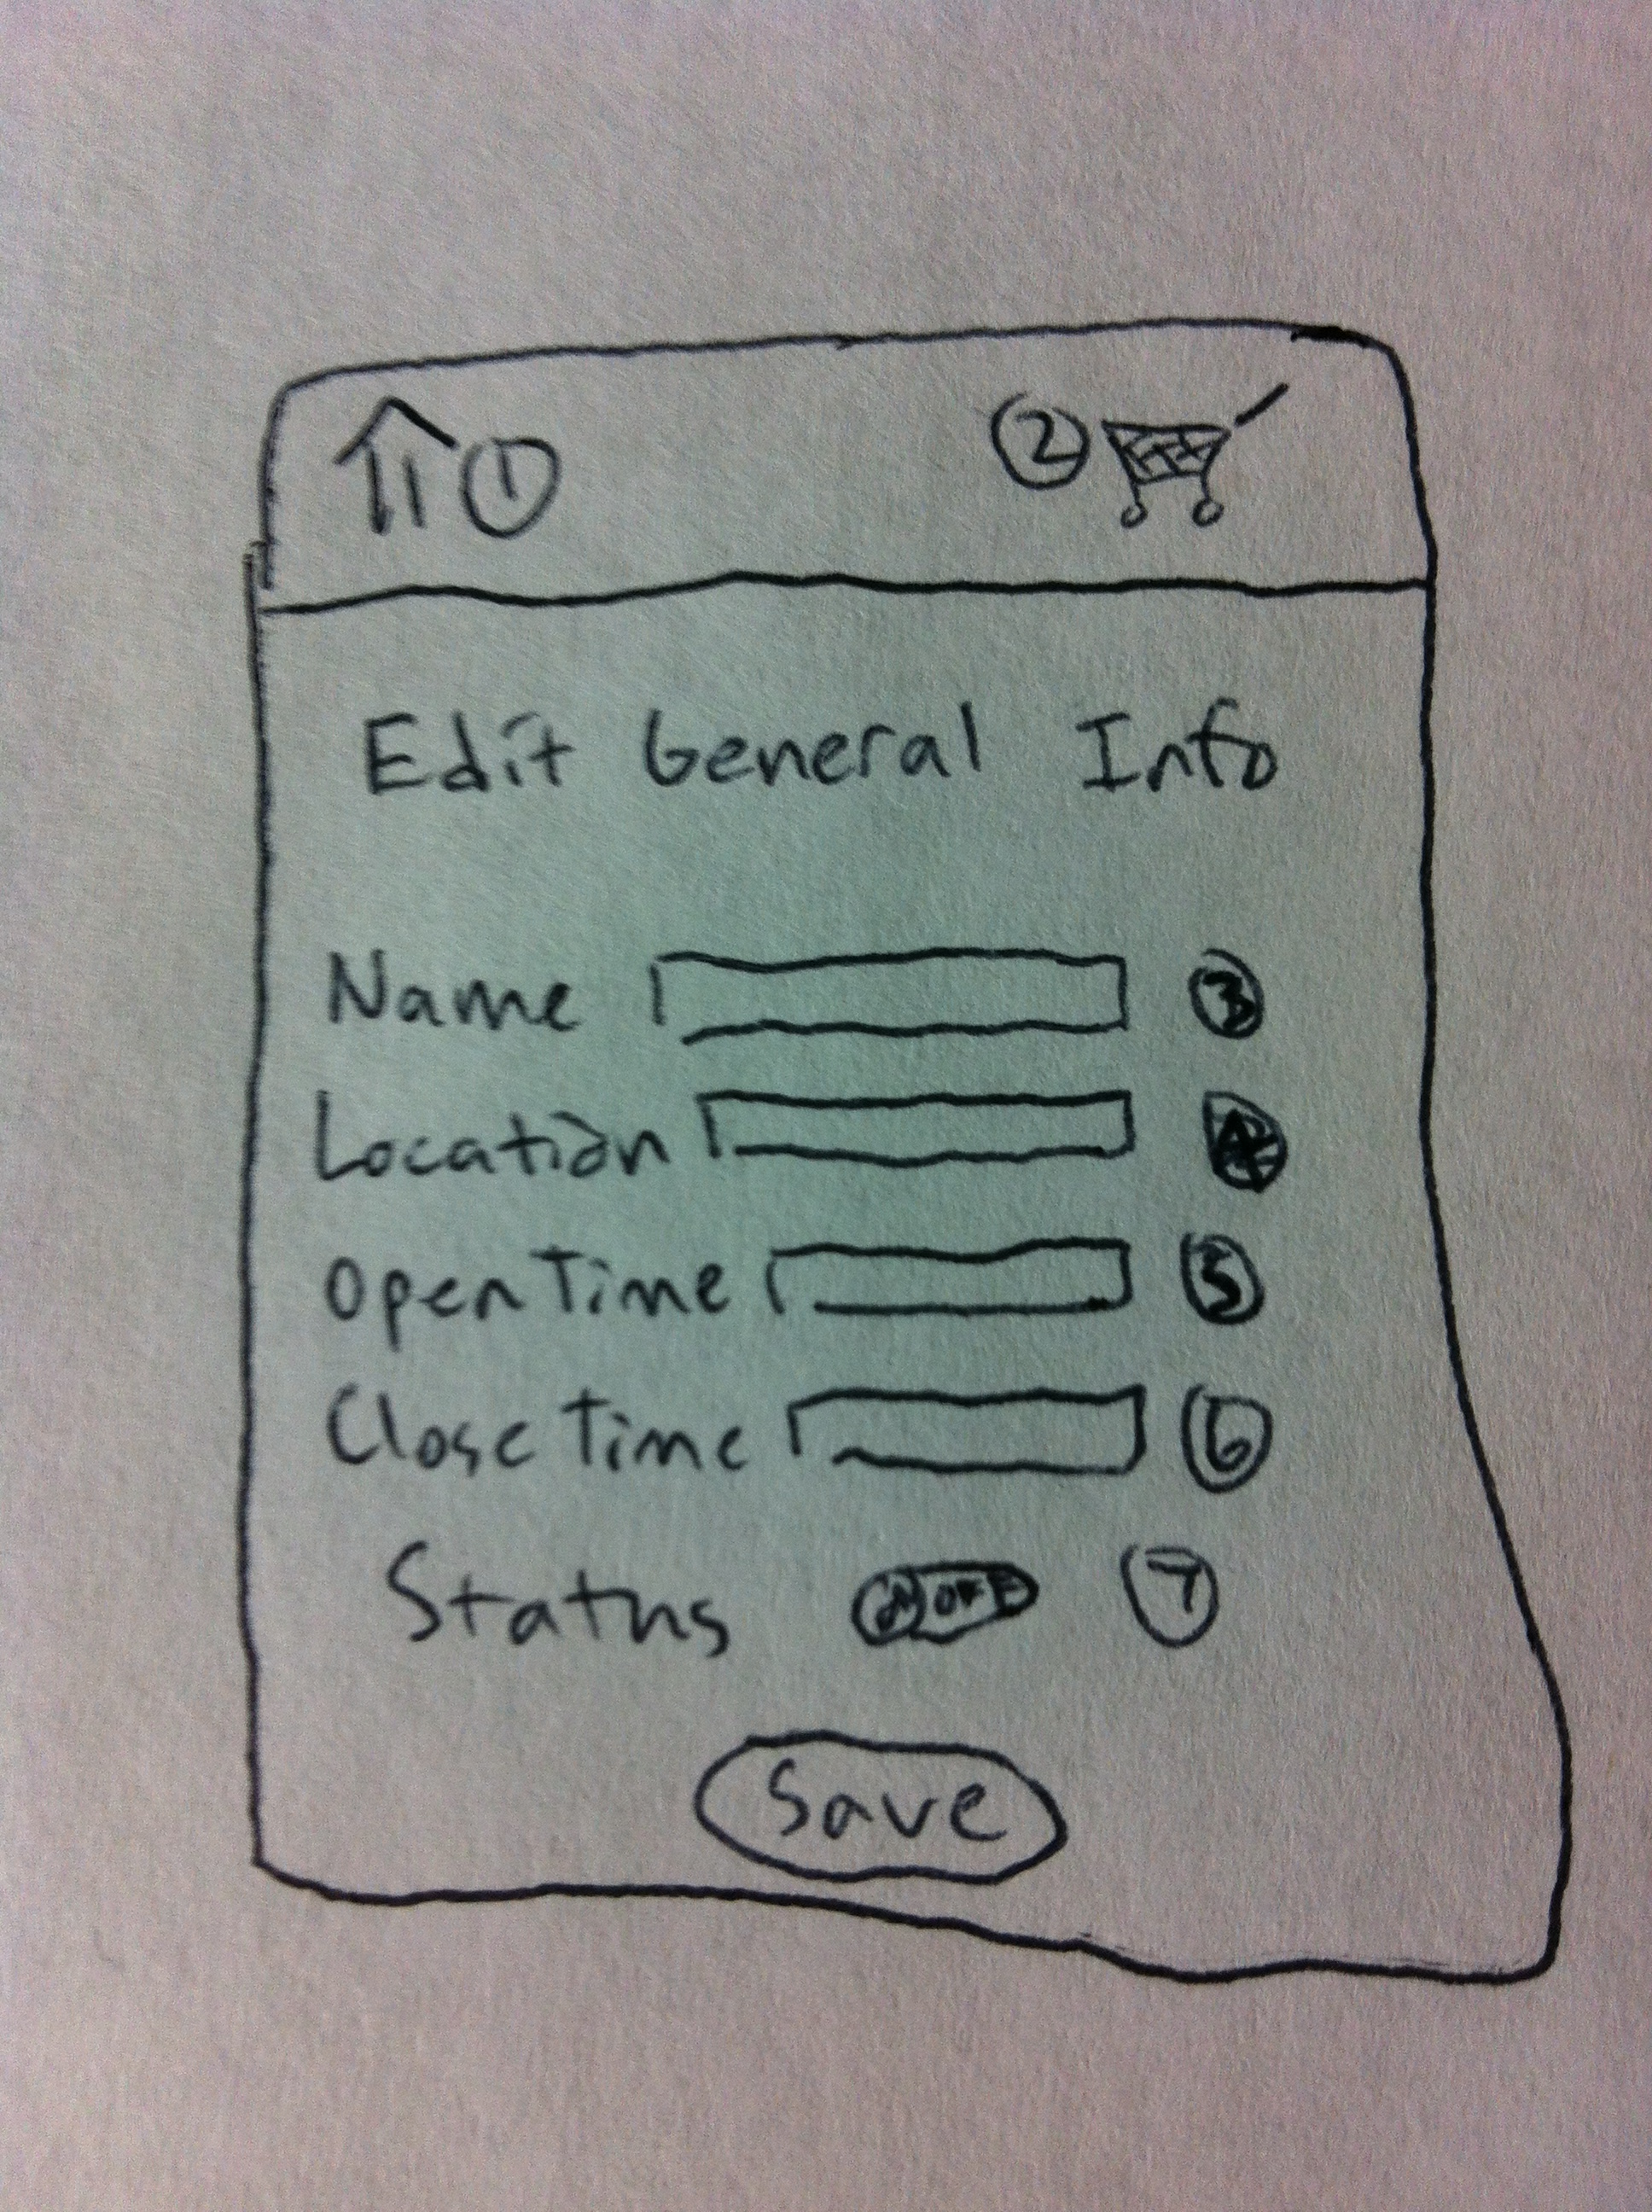 1 2
Edit General Info
Name 3
Location
Open Time 5
Close Time 6
Status OFF 7
Save